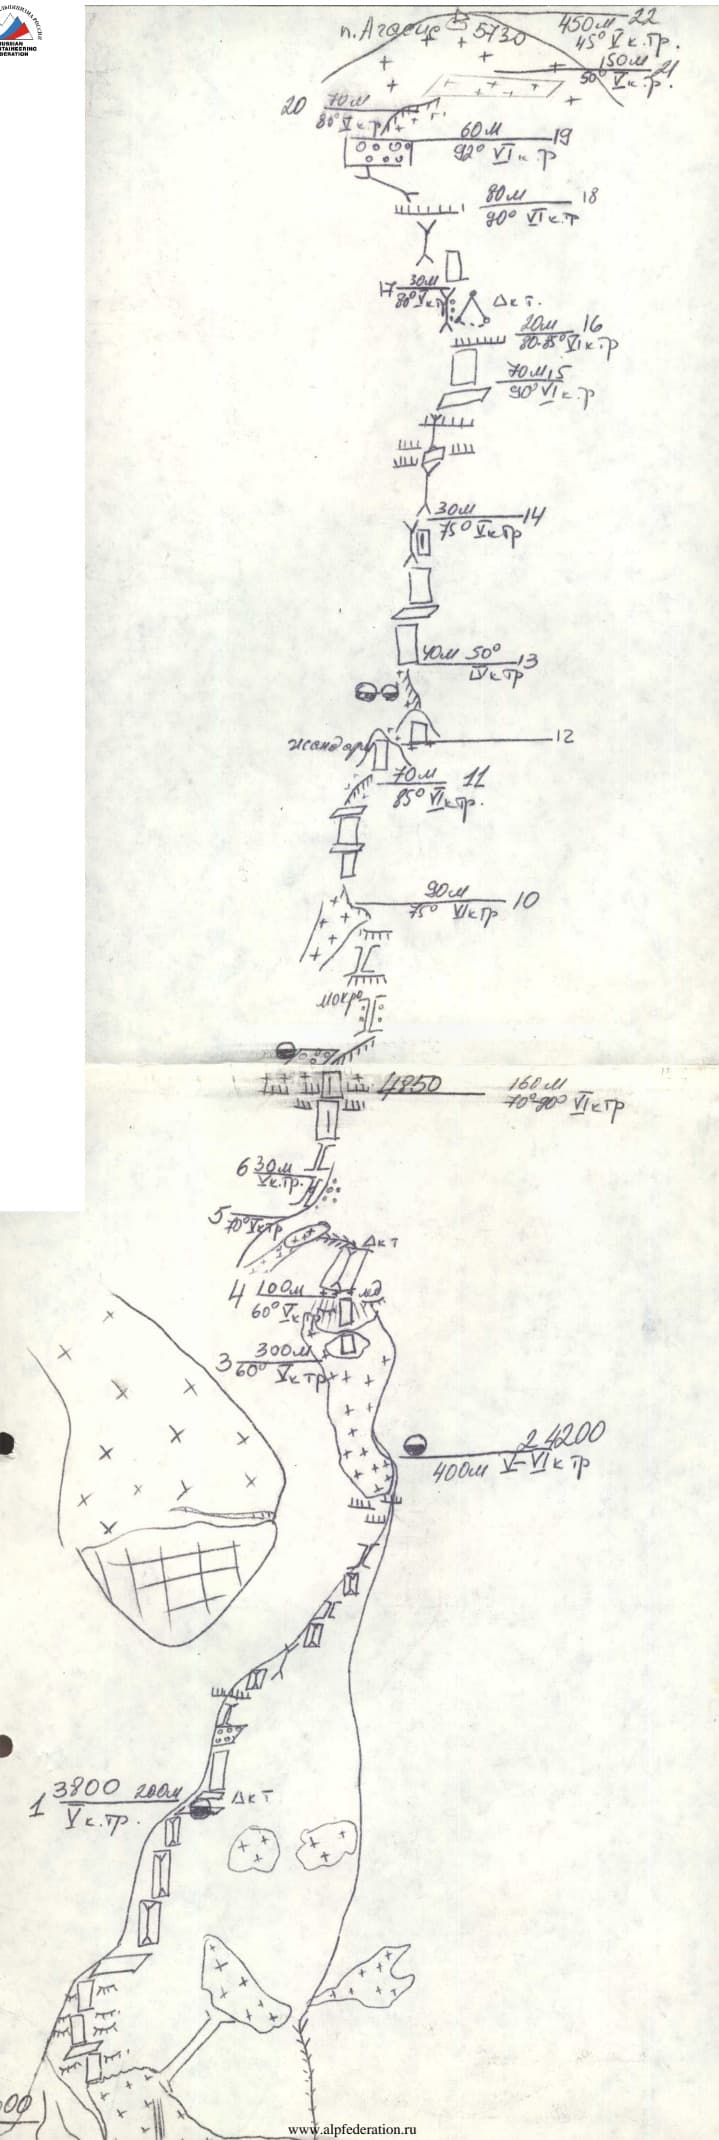 RUSSIAN
п. Агасис 5730
450м 22
45° V к.тр.
150м 21
50° V к.тр.
20 70м
80° V к.тр
60м 19
92° VI к.тр
80м 18
90° VI к.тр
17 30м
80° V к тр
Δ к т.
20м 16
80-85° VI к тр
70м 15
90° VI к.тр
30м 14
75° V к тр
40м 50° 13
IV к тр
жандарм
12
70м 11
85° VI к тр.
90м 10
75° VI к тр
мокро
4850
160м
70°-90° VI к тр
6 30м
V к.тр.
5
70° V к тр
Δ к т
4 100м
60° V к тр
3 300м
60° V к тр
2 4200
400м V-VI к тр
1 3800 200м
V к.тр.
Δ к т
00
www.alpfederation.ru